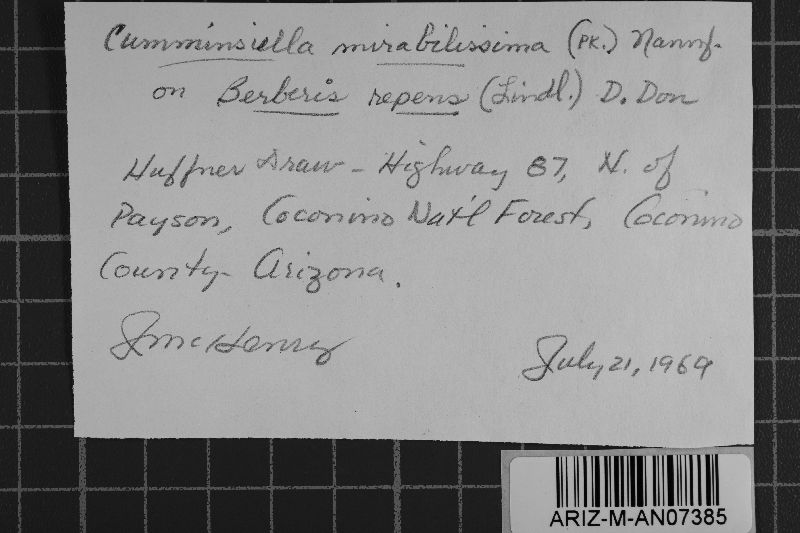 Cumminsiella mirabilissima (PK.) Nannf.
on Berberis repens (Lindl.) D. Don
Huffner Draw - Highway 87, N. of
Payson, Coconino Nat'l Forest, Coconino
County - Arizona.
J McHenry
July 21, 1969
ARIZ-M-AN07385